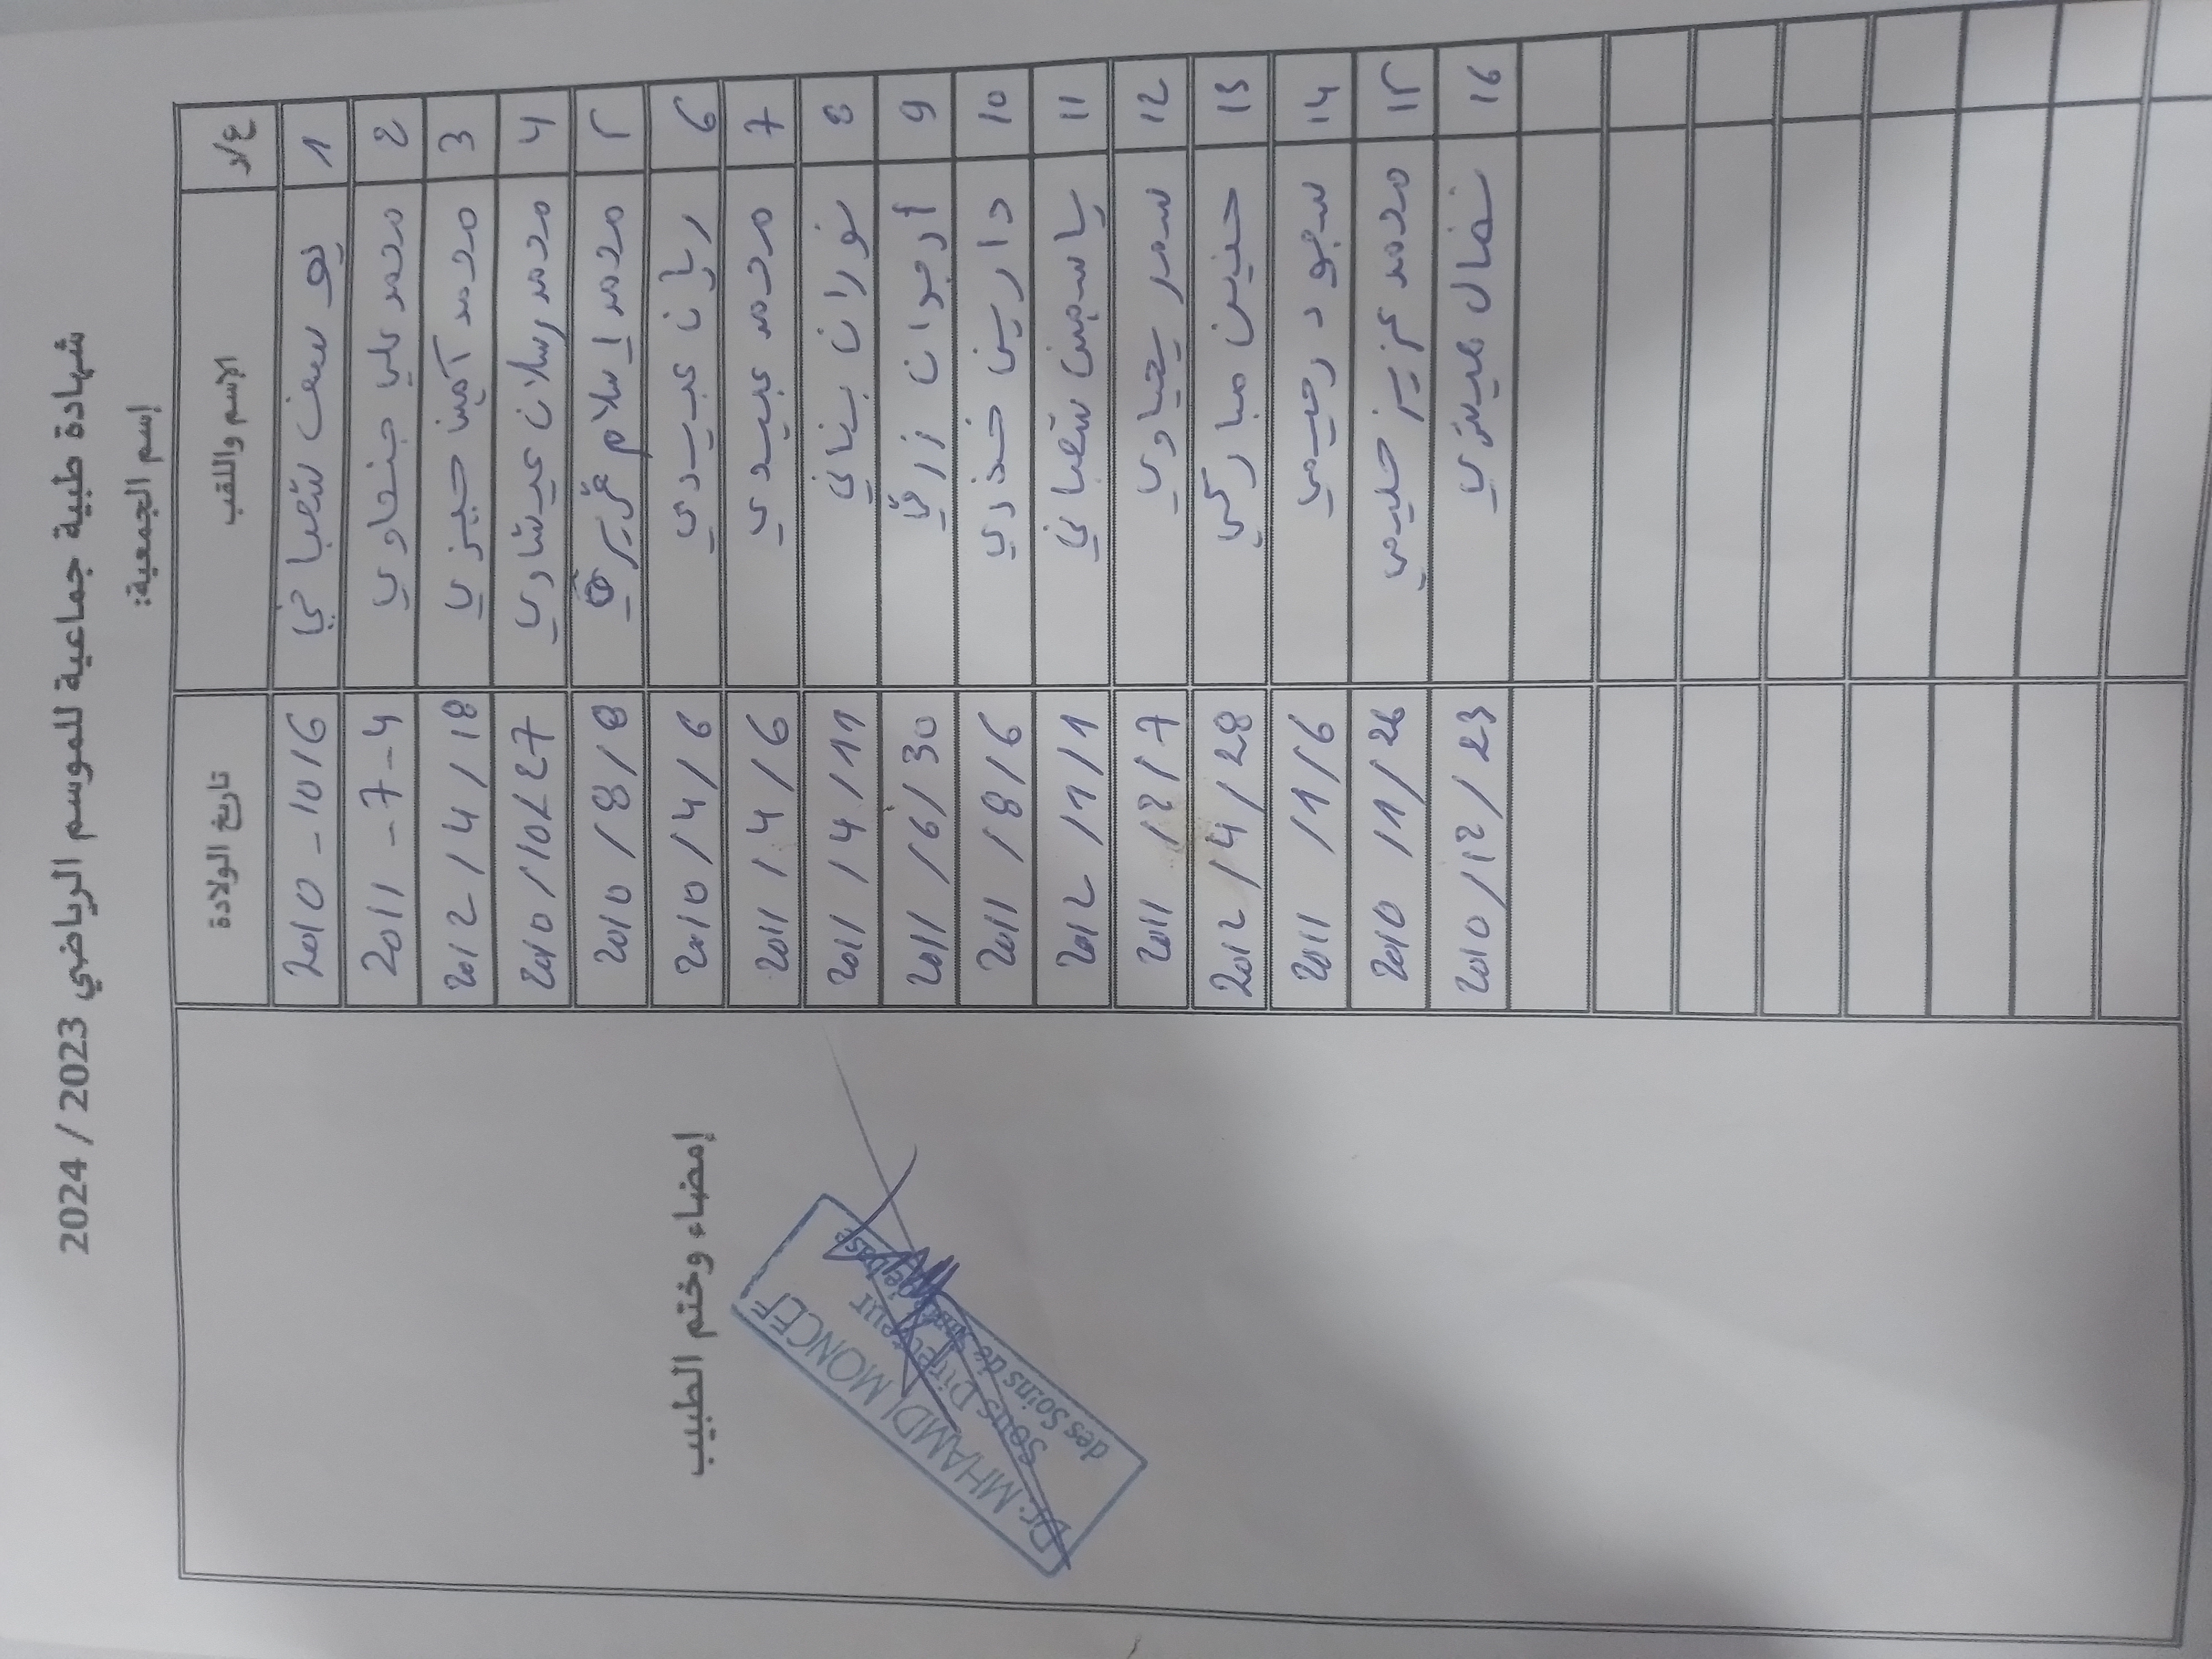 شهادة طبية جماعية للموسم الرياضي 2023 / 2024
إسم الجمعية:
ع/ر الإسم واللقب تاريخ الولادة
1 يوسف شعباني 2010 - 10/6
2 محمد علي جنحاوي 2011 - 7 - 4
3 محمد أمين حيزي 2012 / 4 / 18
4 محمد رسلان عيشاوي 2010 / 10 / 27
5 محمد إسلام 2010 / 8 / 8
6 ريان عبيدي 2010 / 4 / 6
7 محمد عبيدي 2011 / 4 / 6
8 نوران بناني 2011 / 4 / 11
9 أرجوان 2011 / 6 / 30
10 دارين خذري 2011 / 8 / 6
11 ياسمين شعباني 2012 / 1 / 1
12 سمر يحياوي 2011 / 2 / 7
13 حنين مباركي 2012 / 4 / 28
14 سجود رحيمي 2011 / 1 / 6
15 محمد عزيز حليمي 2010 / 1 / 26
16 نضال 2010 / 12 / 23
إمضاء وختم الطبيب
Dr. MHAMDI MONCEF
Sous Directeur
des Soins de Santé de base